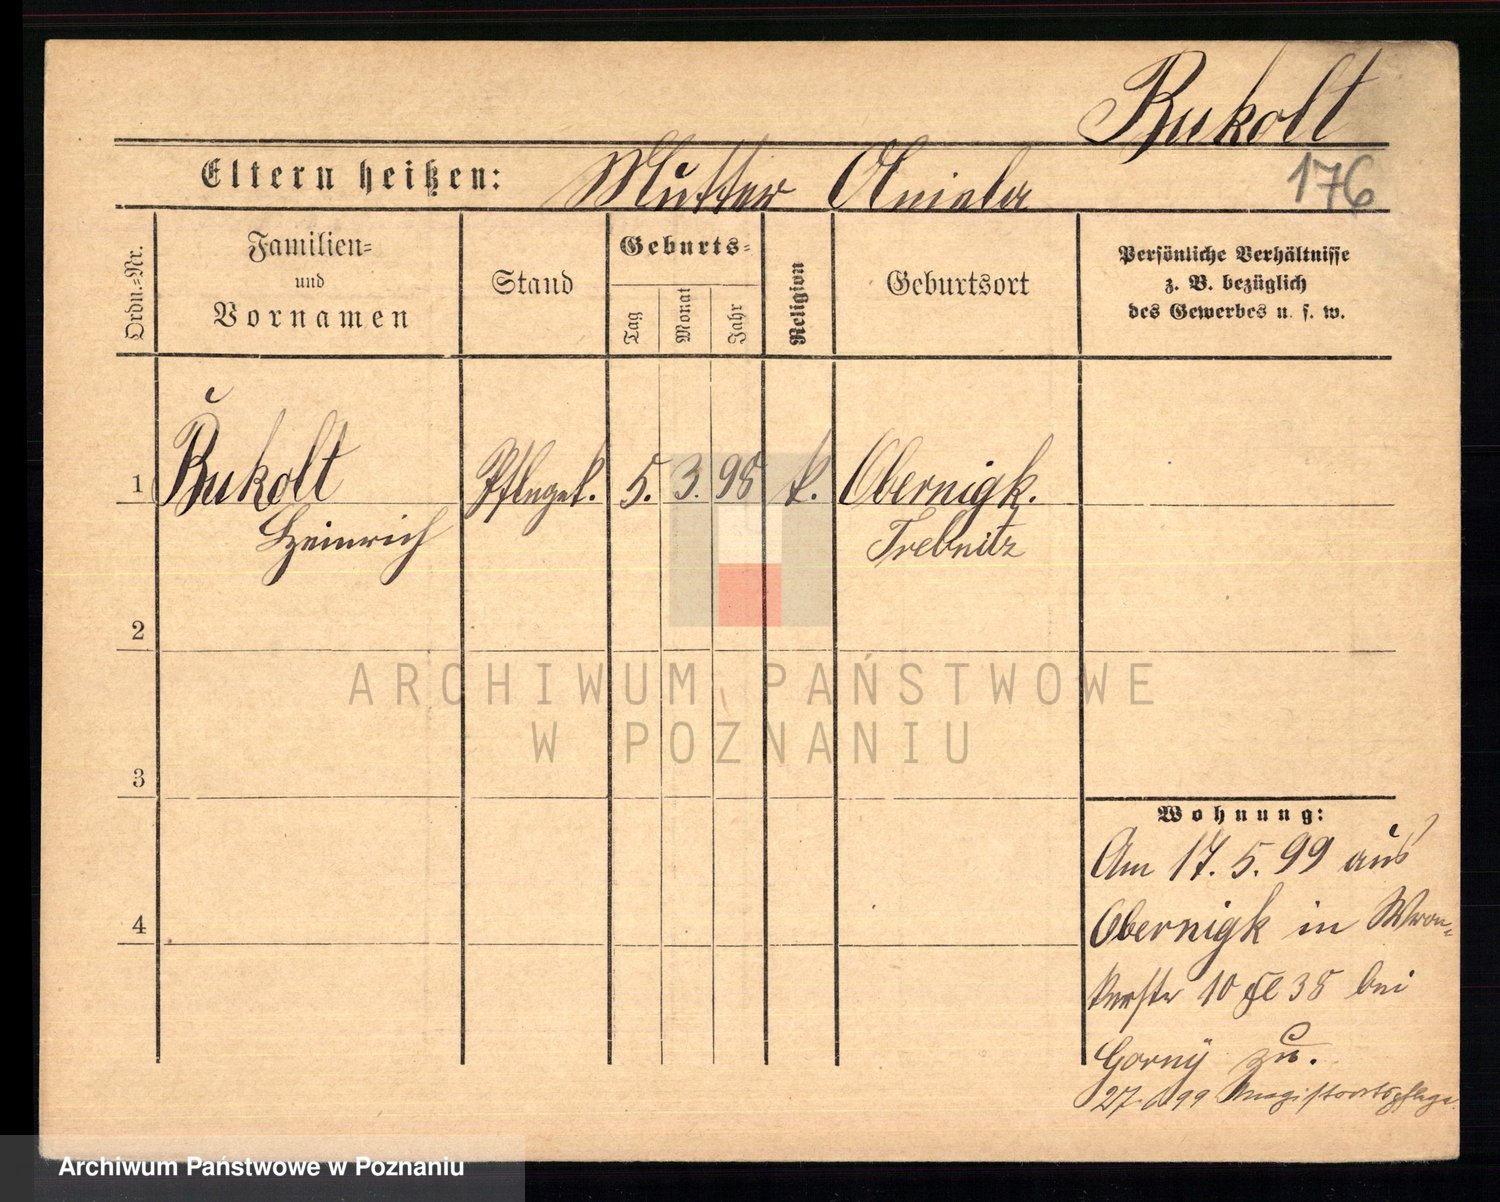 Bukolt
Eltern heißen: Mutter Aniela
176
Ordn.-Nr.
Familien-
und
Vornamen
Stand
Geburts-
Tag
Monat
Jahr
Religion
Geburtsort
Persönliche Verhältnisse
z. B. bezüglich
des Gewerbes u. s. w.
1 Bukolt Pflegek. 5. 3. 98 k. Obernigk.
Heinrich Trebnitz
2
ARCHIWUM PAŃSTWOWE
W POZNANIU
3
Wohnung:
Am 17. 5. 99 aus
4
Obernigk in Wron-
kerstr 10 38 bei
Gorny zu.
27 99 Magistratspflege
Archiwum Państwowe w Poznaniu